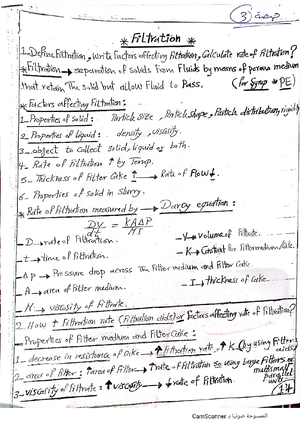 حصة (3)
* Filtration *
1_ Define Filtration, Write Factors affecting Filtration, Calculate rate of Filtration?
* Filtration → separation of solids from Fluids by means of porous medium
that retain The solid but allow Fluid to Pass. (for Syrup → PE)
* Factors affecting Filtration:
1_ Properties of solid: Particle size, Particle shape, Particle distribution, rigidity
2_ Properties of liquid: density, viscosity.
3_ object to Collect solid, liquid or both.
4_ Rate of Filtration ↑ by Temp.
5_ Thickness of Filter Cake ↑ → Rate of Flow ↓
6_ Properties of solid in Slurry.
* Rate of Filtration measured by → Darcy equation:
DV/dt = KAΔP/MI
D → rate of Filtration. _V → volume of Filtrate.
t → time of Filtration. _K → Constant for Filter medium/Cake.
ΔP → Pressure drop across The Filter medium and Filter Cake
A → area of Filter medium. _I → thickness of Cake.
M → viscosity of Filtrate.
2_ How ↑ Filtration rate (Filtration aids) or Factors affecting rate of Filtration?
_ Properties of Filter medium and Filter Cake:
1_ decrease in resistance of Cake → ↑ Filtration rate, ↑ K (by using Filter aids)
2_ area of Filter: ↑ area of Filter → ↑ rate of Filtration so using large Filters or multiple parallel units
3_ viscosity of Filtrate: ↑ viscosity → ↓ rate of Filtration
(14)
CamScanner الممسوحة ضوئيا بـ